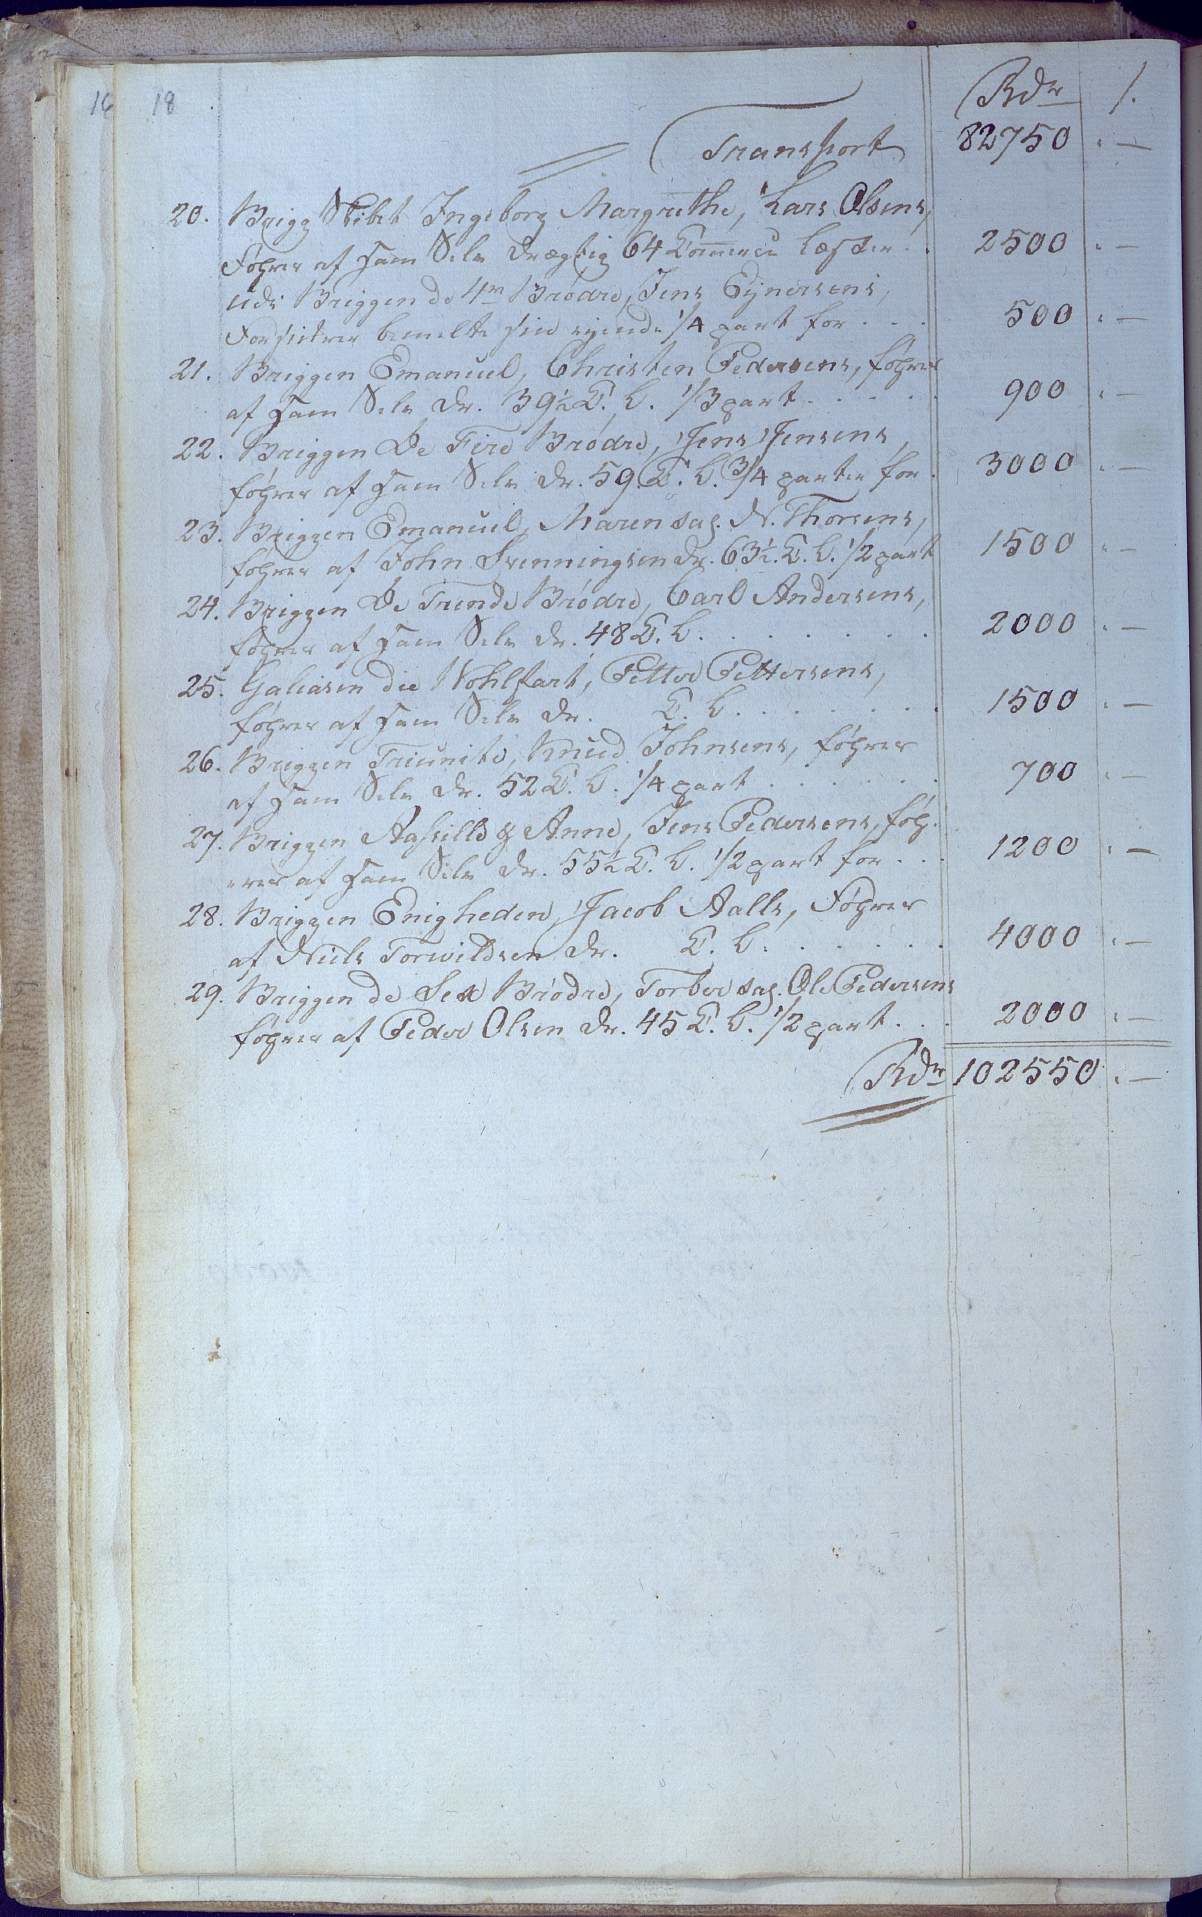 16 18
Rdr ſ.
Transport 82750 . —
20. Brigg Skibet Ingeborg Margrethe, Lars Olsens,
föhrer af ham Selv drægtig 64 Commerce læster . . 2500 . —
udi Briggen de 4re Brödre, Jens Ejnersens,
Forsickrer bemelte sin ejende 1/4 part for . . . 500 . —
21. Briggen Emanuel, Christen Pedersens, föhrer
af ham Selv dr. 39½ C. L. 1/3 part . . . . . 900 . —
22. Briggen De Fire Brödre, Jens Jensens,
föhrer af ham Selv dr. 59. C. L. 3/4 parter for . 3000 . —
23. Briggen Emanuel, Maren sag. N. Thorsens,
föhrer af John Svenningsen dr. 63½. C. L. 1/2 part 1500 . —
24. Briggen De Trende Brödre, Carl Andersens,
föhrer af ham Selv dr. 48 C. L. . . . . . . . 2000 . —
25. Galeasen die Wohlfart, Petter Pettersens,
föhrer af ham Selv dr. C. L. . . . . . . . 1500 . —
26. Briggen Triunito, Knud Johnsens, föhrer
af ham Selv dr. 52 C. L. 1/4 part . . . . . . 700 . —
27. Briggen Aasille & Anne, Jens Pedersens, föh-
rer af ham Selv dr. 55½ C. L. 1/2 part for . . . 1200 . —
28. Briggen Enigheden, Jacob Aalls, Föhrer
af Niels Torvildsen dr. C. L. . . . . . . 4000 . —
29. Briggen de Sex Brödre, Torber sag. Ole Pedersens
föhrer af Peder Olsen dr. 45 C. L. 1/2 part . . . 2000 . —
Rdr 102550 . —